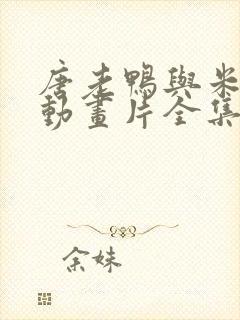 唐老鴨與米
動畫片全集
余妹